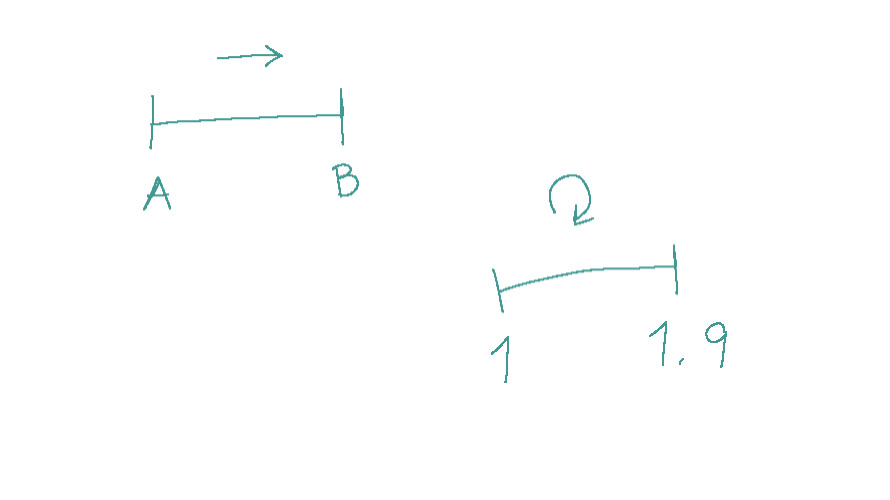 A B
1 1.9